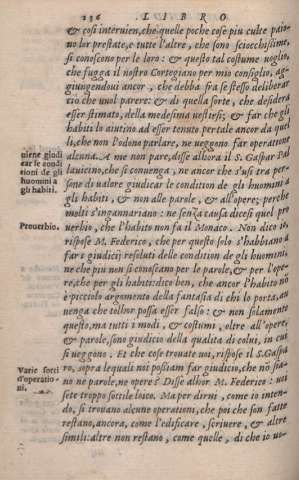 136 LIBRO
& cosi interuien, che quelle poche cose piu culte paio-
no lor prestate, e tutte l'altre, che sono sciocchissime,
si conoscono per le loro: & questo tal costume uoglio,
che fugga il nostro Cortegiano per mio consiglio, ag-
giungendoui ancor, che debba fra se stesso deliberar
ciò che uol parere: & di quella sorte, che desidera
esser stimato, della medesima uestirsi; & far che gli
habiti lo aiutino ad esser tenuto per tale ancor da que
li, che non l'odono parlare, ne ueggono far operatione
alcuna. A me non pare, disse alhora il S. Gaspar Pal
lauicino, che si conuenga, ne ancor che s'usi tra per-
sone di ualore giudicar le condition de gli huomini a
gli habiti, & non alle parole, & all'opere; perche
molti s'ingannariano: ne senza causa dicesi quel pro
uerbio, che l'habito non fa il Monaco. Non dico io,
rispose M. Federico, che per questo solo s'habbiano a
far i giudicij resoluti delle condition de gli huomini,
ne che piu non si conoscano per le parole, & per l'ope-
re, che per gli habiti: dico ben, che ancor l'habito nō
è picciolo argomento della fantasia di chi lo porta, au
uenga che tal'hor possa esser falso: & non solamente
questo, ma tutti i modi, & costumi, oltre all'opere,
& parole, sono giudicio della qualita di colui, in cui
si ueggono. Et che cose trouate uoi, rispose il S. Gaspa
ro, sopra lequali noi possiam far giudicio, che nō sia-
no ne parole, ne opere? Disse alhor M. Federico: uoi
sete troppo sottile loico. Ma per dirui, come io inten-
do, si trouano alcune operationi, che poi che son fatte
restano, ancora, come l'edificare, scriuere, & altre
simili: altre non restano, come quelle, di che io uo-
uiene giudi
car le condi
tioni de gli
huomini a
gli habiti.
Prouerbio.
Varie sorti
d'operatio-
ni.